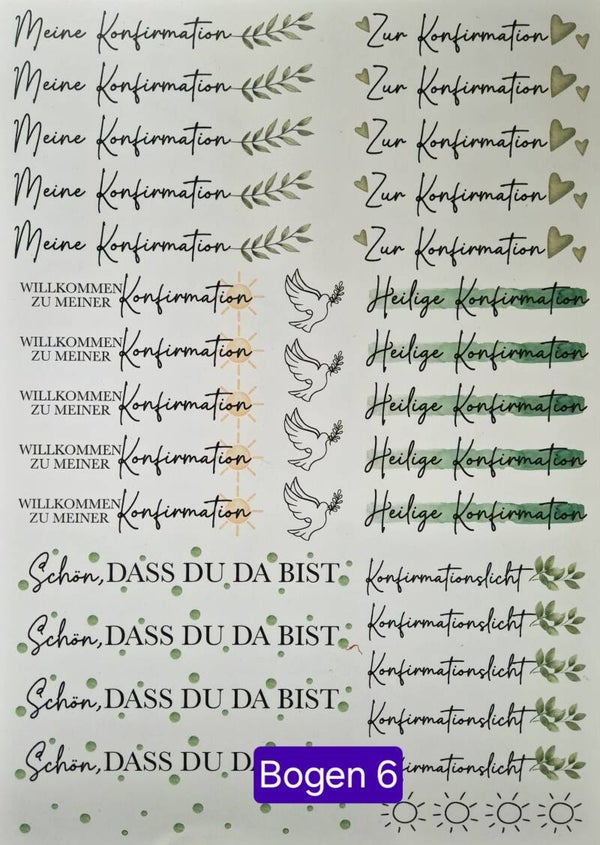 Meine Konfirmation
Meine Konfirmation
Meine Konfirmation
Meine Konfirmation
Meine Konfirmation
Zur Konfirmation
Zur Konfirmation
Zur Konfirmation
Zur Konfirmation
Zur Konfirmation
WILLKOMMEN
ZU MEINER Konfirmation
WILLKOMMEN
ZU MEINER Konfirmation
WILLKOMMEN
ZU MEINER Konfirmation
WILLKOMMEN
ZU MEINER Konfirmation
WILLKOMMEN
ZU MEINER Konfirmation
Heilige Konfirmation
Heilige Konfirmation
Heilige Konfirmation
Heilige Konfirmation
Heilige Konfirmation
Schön, DASS DU DA BIST
Schön, DASS DU DA BIST
Schön, DASS DU DA BIST
Schön, DASS DU D
Konfirmationslicht
Konfirmationslicht
Konfirmationslicht
Konfirmationslicht
firmationslicht
Bogen 6